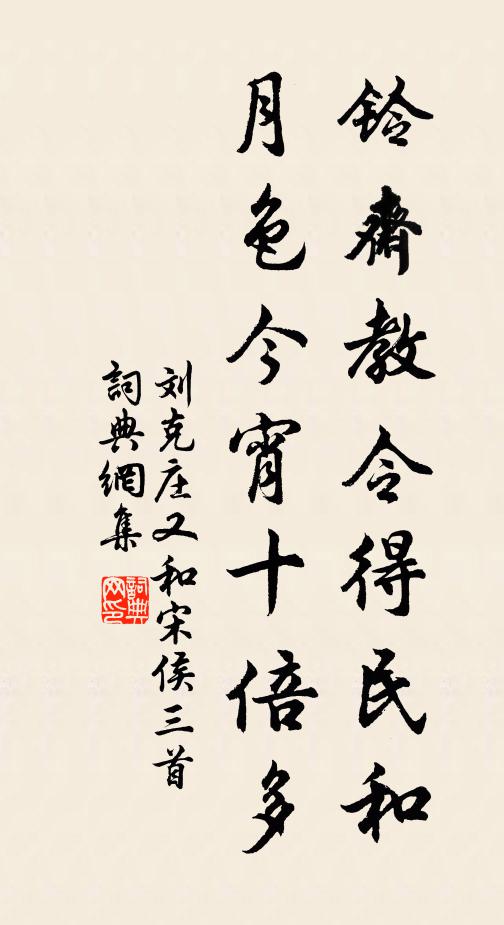 铃齋教令得民和
月色今宵十倍多
刘克庄又和宋侯三首
詞典網集
詞典网印